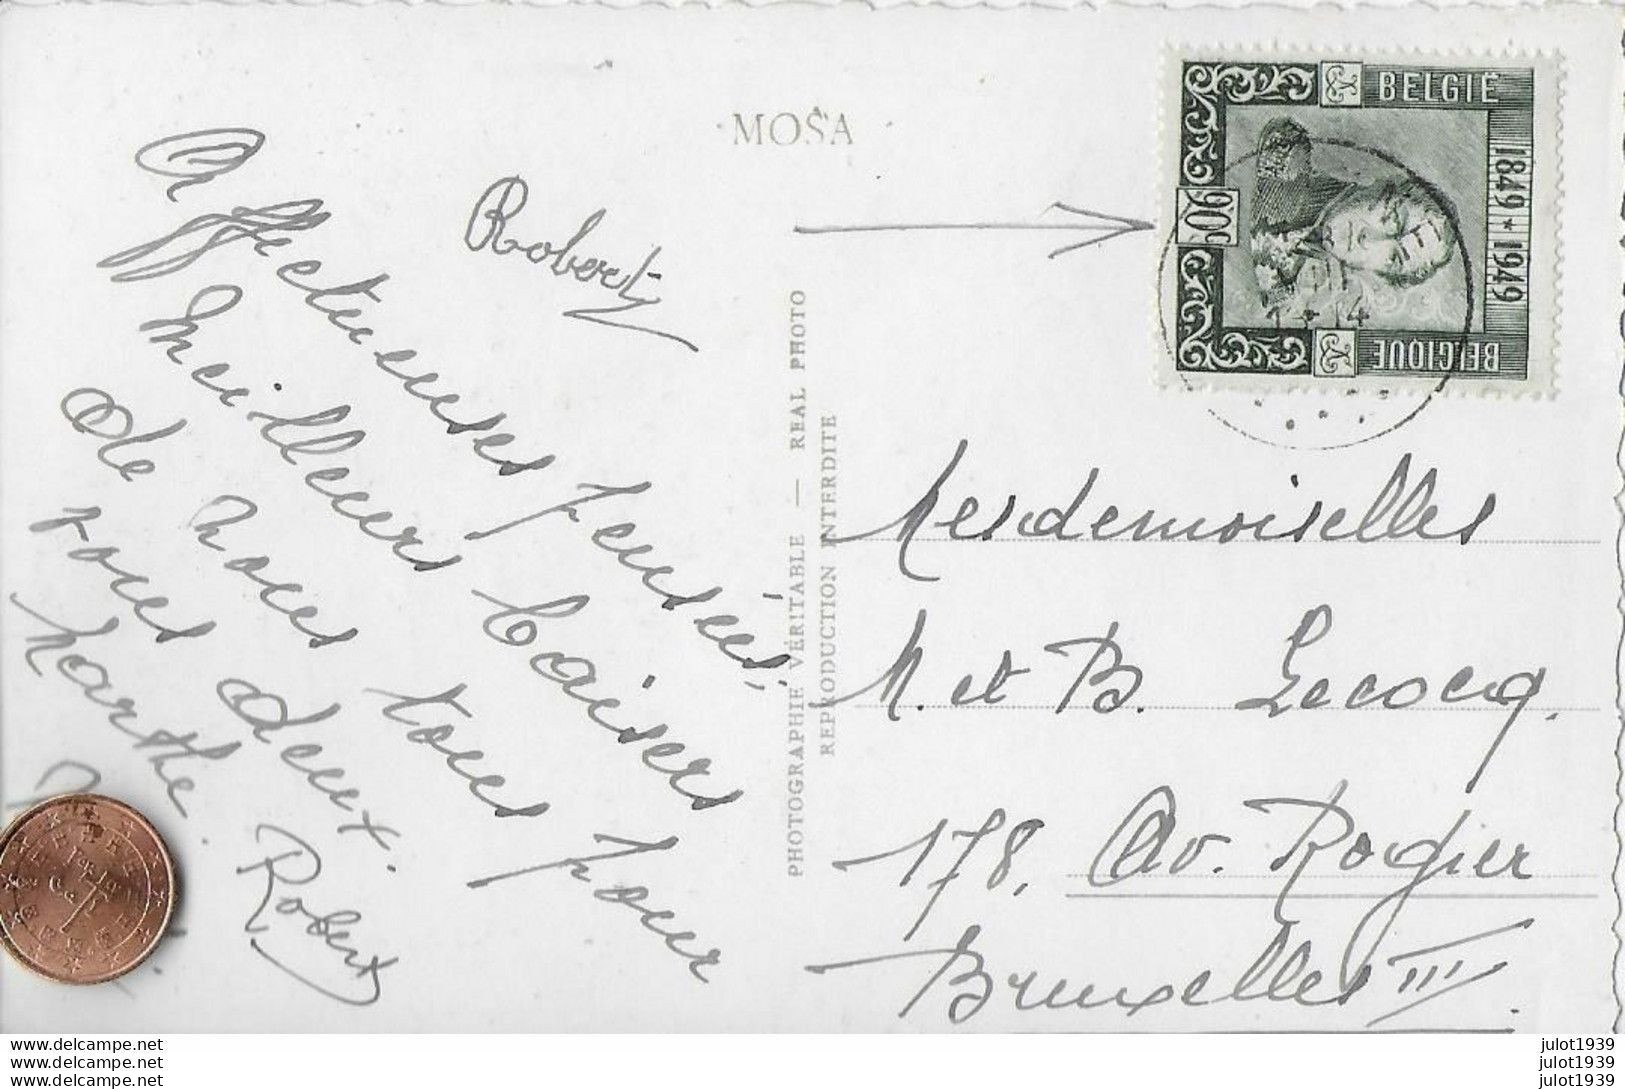 MOSA
Robert
Affectueuses pensées,
Meilleurs baisers
de nous tous pour
vous deux.
Marthe. Robert
PHOTOGRAPHIE VÉRITABLE — REAL PHOTO
REPRODUCTION INTERDITE
BELGIË
1849 * 1949
90c
BELGIQUE
Mesdemoiselles
M. et B. Lecocq.
178, Av. Rogier
Bruxelles III.
www.delcampe.net
www.delcampe.net
www.delcampe.net
julot1939
julot1939
julot1939